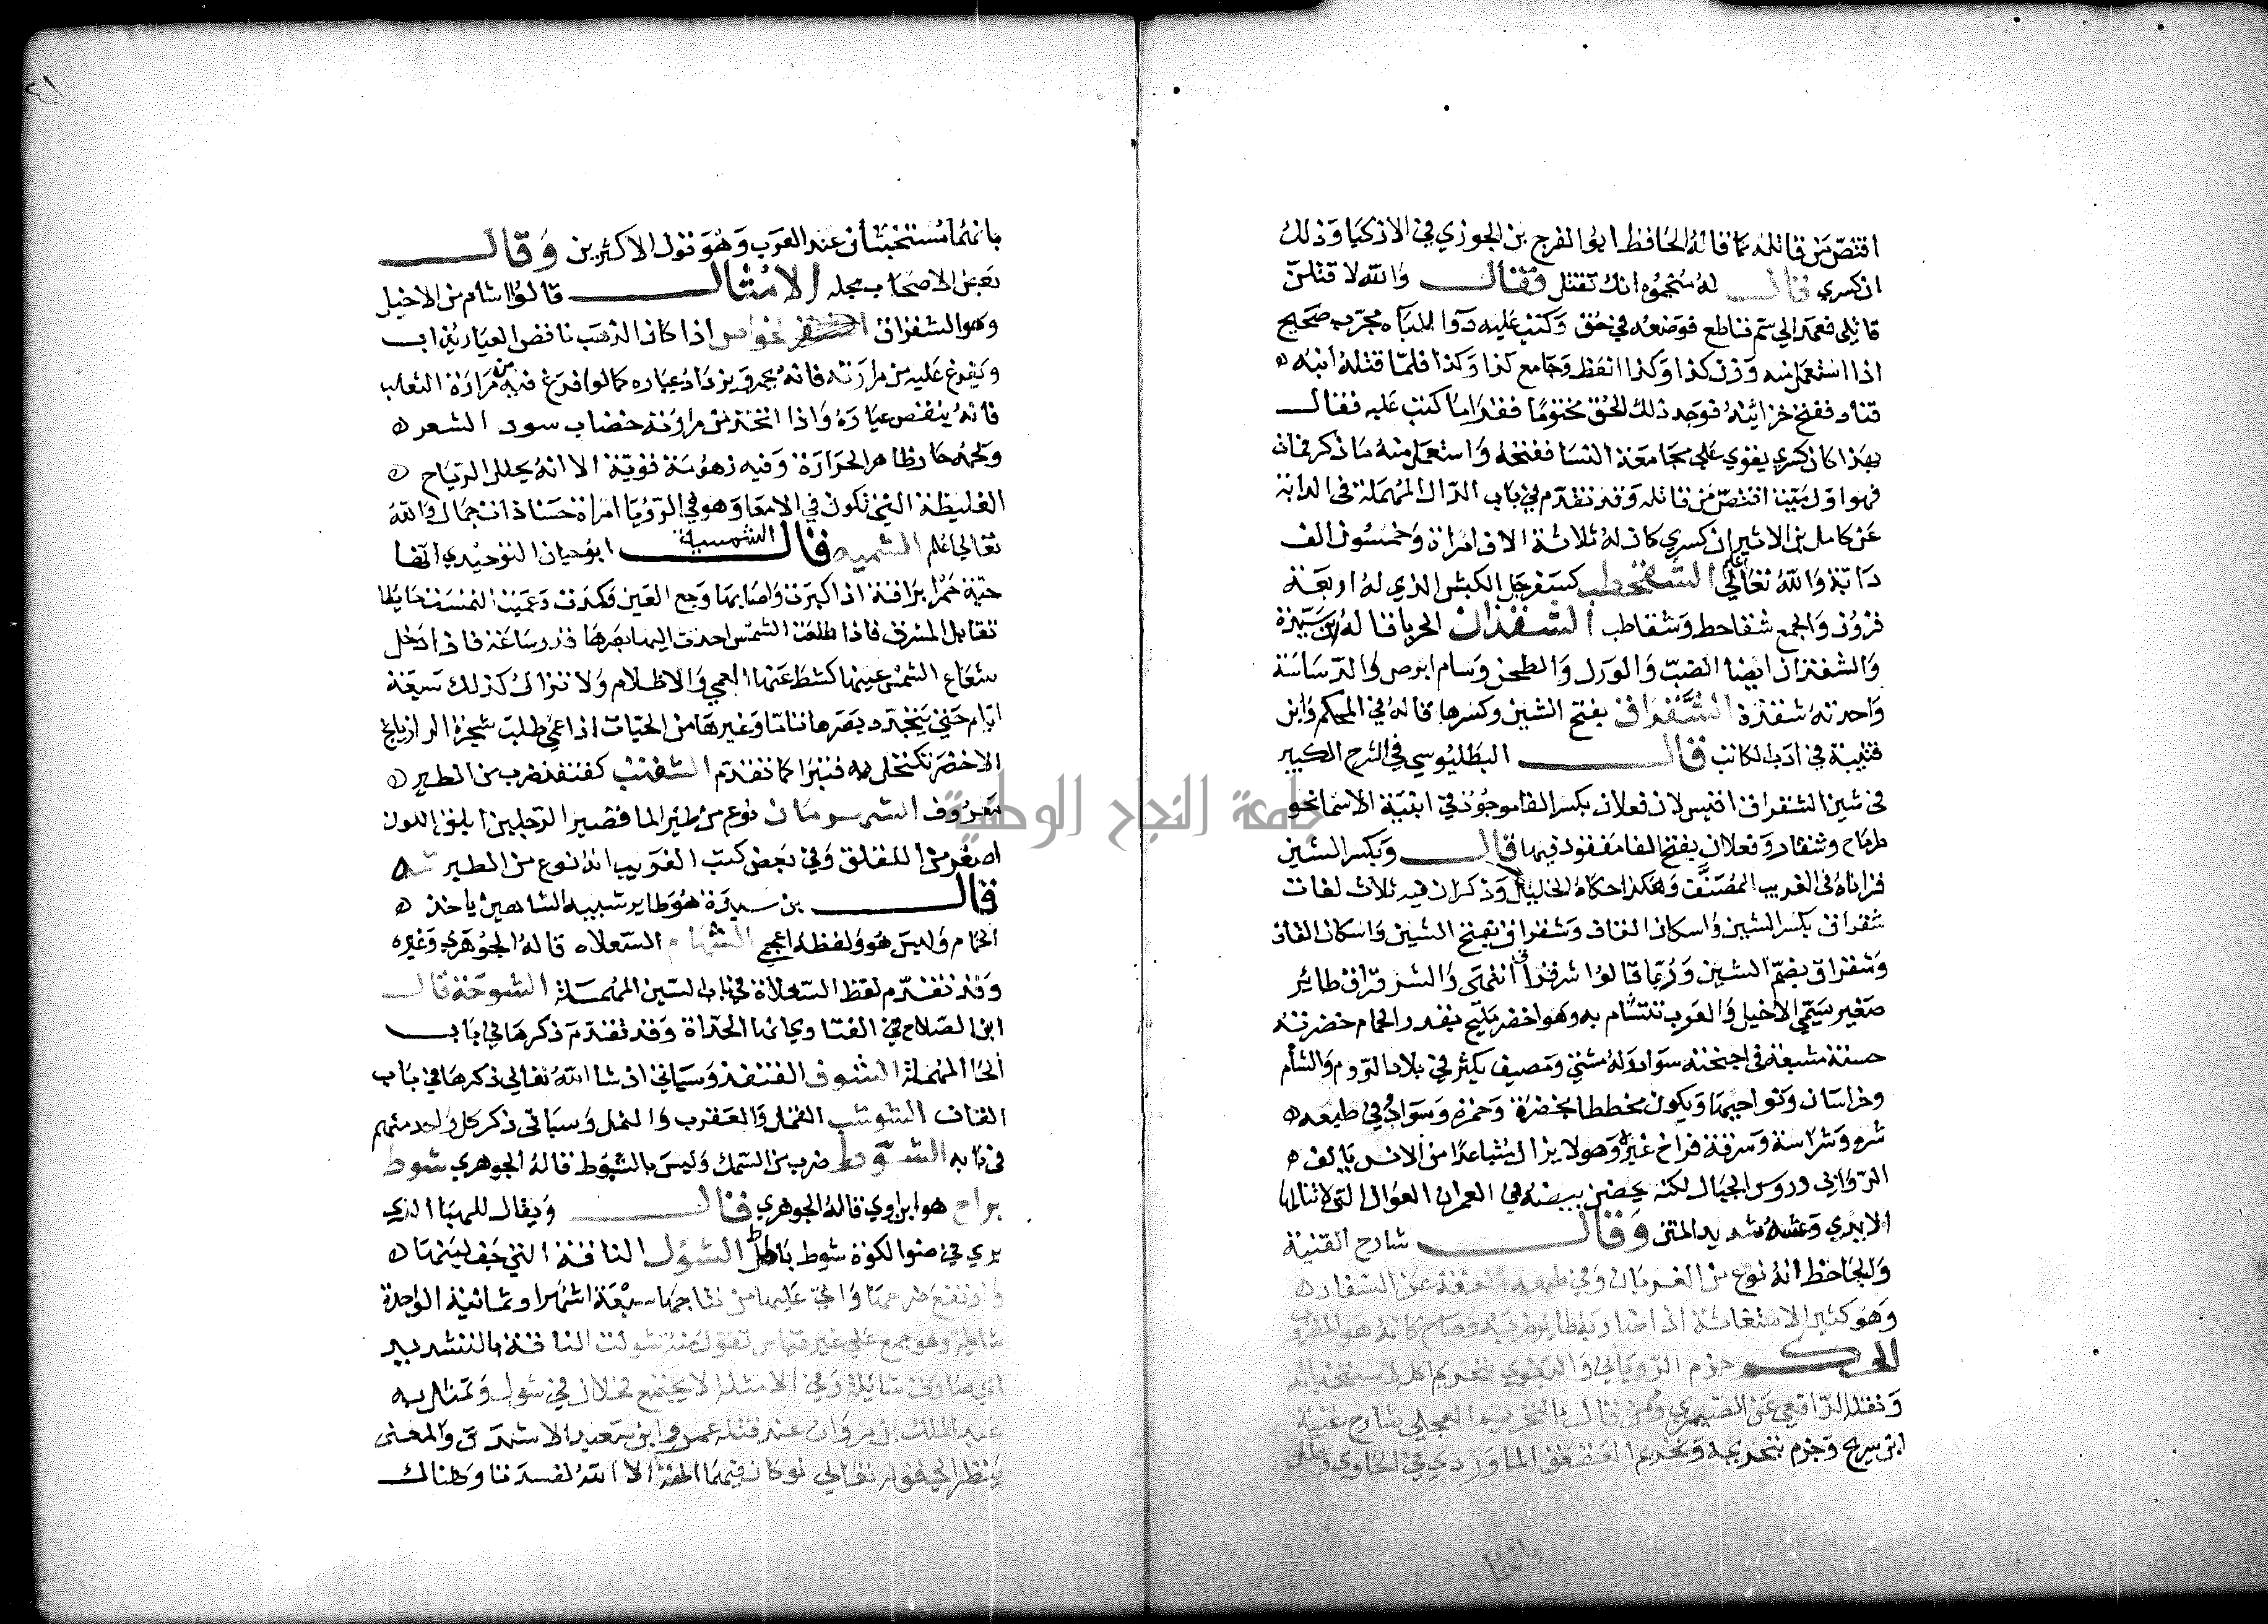 اقتص من قاتله مما قاله الحافظ ابو الفرج بن الجوزي في الاذكيا وذلك
ان كسري قال له منجموه انك تقتل فقال والله لاقتلن
قاتلي فعمد الي سم ناطع فوضعه في حق وكتب عليه دوا للباه مجرب صحيح
اذا استعمل منه وزن كذا وكذا انعظ وجامع كذا وكذا فلما قتله ابنه
قتاد ففتح خزائنه فوجد ذلك الحق مختوما فقرا ما كتب عليه فقال
بهذا كان كسري يقوي علي مجامعة النسا ففتحه واستعمل منه ما ذكر فمات
فهو اول ميت اقتص من قاتله وقد تقدم في باب الدال المهملة في الدابة
عن كامل بن الاثير ان كسري كان له ثلاثة الاف امراة وخمسون الف
دابة والله تعالي اعلم الشفحطب كسفرجل الكبش الذي له اربعة
قرون والجمع شقاحط وشقاطب الشقذان الحربا قاله ابن سيدة
والشقذان ايضا الضب والورل والطحن وسام ابرص والدساسة
واحدته شقذة الشقراق بفتح الشين وكسرها قاله في المحكم وابن
قتيبة في ادب الكاتب قال البطليوسي في الشرح الكبير
في شين الشقراق اقيس لان فعلان بكسر الفا موجود في ابنية الاسما نحو
طرماح وشنقار وفعلان بفتح الفا مفقود فيها قال وبكسر الشين
قراناه في الغريب المصنف وهكذا حكاه الخليل وذكر ان فيه ثلاث لغات
شقراق بكسر الشين واسكان القاف وشقراق بفتح الشين واسكان القاف
وشقراق بضم الشين وربما قالوا شرقراق انتهي والشرقراق طائر
صغير يسمي الاخيل والعرب تتشام به وهو اخضر مليح بقدر الحمام خضرته
حسنة مشبعة في اجنحته سواد وله مشتي ومصيف يكثر في بلاد الروم والشام
وخراسان ونواحيها ويكون مخططا بخضرة وحمرة وسواد وفي طبعه
شره وشراسة وسرقة فراخ غيره وهو لا يزال متباعدا من الانس يالف
الروابي وروس الجبال لكنه يحضن بيضه في العمران العوال التي لا تنالها
الايدي وعشه شديد المتن وقال شارح القنية
والجاحظ انه نوع من الغربان وفي طبعه العفة عن السفاد
وهو كثير الاستغاثة اذا ضاربه طائر ضربه وصاح كانه هو المضروب
الحكم جزم الروياني والبغوي بتحريم اكله لاستخباثه
ونقله الرافعي عن الصيمري وممن قال بالتحريم العجلي شارح غنية
ابن سريج وجزم بتحريمه وتحريم العقعق الماوردي في الحاوي وعلل
بانهما
بانهما مستخبثان عند العرب وهو قول الاكثرين وقال
بعض الاصحاب بحله الامثال قالوا اشام من الاخيل
وهو الشقراق الخواص اذا كان الذهب ناقص العيار يذاب
ويفرغ عليه من مرارته فانه يحمر ويزداد عياره كما لو افرغ فيه من مرارة الثعلب
فانه ينقص عياره واذا اتخذ من مرارته خضاب سود الشعر
ولحمه حار ظاهر الحرارة وفيه زهومة قوية الا انه يحلل الرياح
الغليظة التي تكون في الامعا وهو في الرؤيا امراة حسنا ذات جمال والله
تعالي اعلم الشميه الشمسية قال ابو حيان التوحيدي انها
حية حمرا براقة اذا كبرت واصابها وجع العين وكمدت وعميت التمست حايطا
تقابل المشرق فاذا طلعت الشمس احدت اليها بصرها قدر ساعة فاذا دخل
شعاع الشمس عينها كشط عنها العمي والاظلام ولا تزال كذلك سبعة
ايام حتي يتجدد بصرها تاما وغيرها من الحيات اذا عمي طلبت شجرة الرازيانج
الاخضر تكتحل به فتبرا كما تقدم الشقنب كقنفذ ضرب من الطير
معروف الشرسومان نوع من طير الما قصير الرجلين ابلق اللون
اصغر من اللقلق وفي بعض كتب الغريب انه نوع من الطير شه
قال بن سيدة هو طاير شبيه الشاهين ياخذ
الحمام وليس هو ولفظه اعجمي الشهام السعلاه قاله الجوهري وغيره
وقد تقدم لفظ السعلاة في باب السين المهملة الشوحة قال
ابن الصلاح في الفتاوي انها الحداة وقد تقدم ذكرها في باب
الحا المهملة الشوف القنفذ وسياتي ان شا الله تعالي ذكرها في باب
القاف الشوشب القمل والعقرب والنمل وسياتي ذكر كل واحد منهم
في بابه الشوط ضرب من السمك وليس بالشبوط قاله الجوهري شوط
براح هو ابن اوي قاله الجوهري قال ويقال للهبا الذي
يري في ضوء الكوة شوط باطل الشول الناقة التي خف لبنها
وارتفع ضرعها واتي عليها من نتاجها سبعة اشهر او ثمانية الواحدة
شايلة وهو جمع علي غير قياس تقول منه شولت الناقة بالتشديد
اي صارت شايلة وفي الامثلة لا يجتمع فحلان في شول وتمثل به
عبد الملك بن مروان عند قتله عمرو بن سعيد الاشدق والمعني
ينظر الي قوله تعالي لو كان فيهما الهة الا الله لفسدتا وهناك
٤١
جامعة النجاح الوطنية